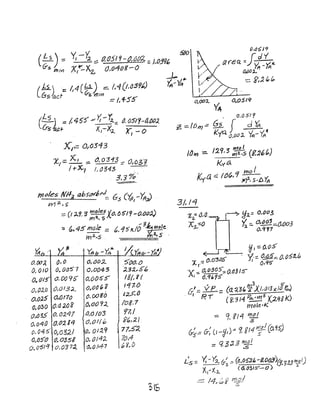 (Ls/Gs)min = Y1-Y2/X1*-X2 = 0.0519-0.002/0.0408-0 = 1.0396
(Ls/Gs)act = 1.4(Ls/Gs)min = 1.4(1.0396)
= 1.455
(Ls/Gs)act = 1.455 = Y1-Y2/X1-X2 = 0.0519-0.002/X1-0
X1 = 0.0343
x1 = X1/1+X1 = 0.0343/1.0343 = 0.033
3.3%
moles NH3 absorbed/m²·s = Gs(YA1-YA2)
= (129.3 moles/m²·s)(0.0519-0.002)
= 6.45 mole/m²·s = 6.45x10⁻³ kg mole/m²·s
YA YA* YA-YA* 1/(YA-YA*)
0.002 0.0 0.002 500.0
0.010 0.0057 0.0043 232.56
0.015 0.0095 0.0055 181.81
0.020 0.0132 0.0068 147.0
0.025 0.0170 0.0080 125.0
0.030 0.0208 0.0092 108.7
0.035 0.0247 0.0103 97.1
0.040 0.0284 0.0116 86.21
0.045 0.0321 0.0129 77.52
0.050 0.0358 0.0142 70.4
0.0519 0.0372 0.0147 68.0
500
1/YA-YA*
0.002 0.0519
YA
area = ∫ dY/YA-YA* = 8.266
0.0519
0.002
z = 10m = Gs/KYa ∫ dYA/YA-YA*
0.0519
0.002
10m = 129.3 mol/m²·s (8.266)/KYa
KYa = 106.9 mol/m³·s·ΔYA
31.14
x2=0.0
X2=0
y2 = 0.003
Y2 = 0.003/0.997 = 0.003
x1 = 0.0305
X1 = 0.0305/0.9695 = 0.0315
y1 = 0.05
Y1 = 0.05/0.95 = 0.0526
G1' = V̇P/RT = (0.0236 m³/s)(1.013x10⁵ Pa)/(8.314 Pa·m³/mole·K)(293K)
= 9.814 mol/s
Gs' = G1'(1-y1) = 9.814 mol/s (0.95)
= 9.323 mol/s
Ls' = Y1-Y2/X1-X2 Gs' = (0.0526-0.003)/(0.0315-0) (9.323 mol/s)
= 14.68 mol/s
315